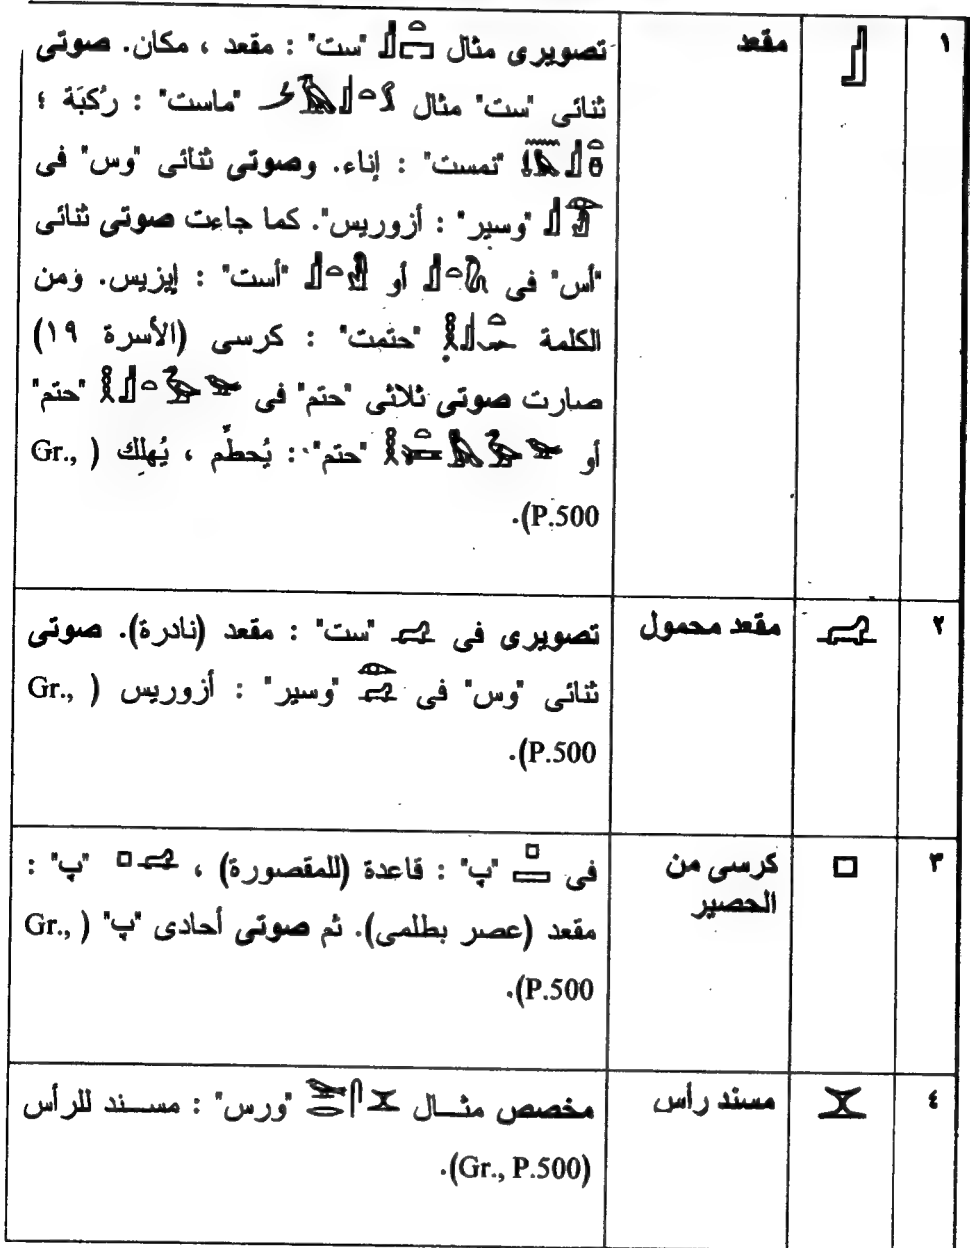 ١ مقعد تصويرى مثال "ست" : مقعد ، مكان. صوتى
ثنائى "ست" مثال "ماست" : رُكبَة ؛
"نمست" : إناء. وصوتى ثنائى "وس" فى
"وسير" : أزوريس". كما جاءت صوتى ثنائى
"أس" فى أو "أست" : إيزيس. ومن
الكلمة "حتمت" : كرسى (الأسرة ١٩)
صارت صوتى ثلاثى "حتم" فى "حتم"
أو "حتم" : يُحطَّم ، يُهلِك (Gr.,
P.500).
٢ مقعد محمول تصويرى فى "ست" : مقعد (نادرة). صوتى
ثنائى "وس" فى "وسير" : أزوريس (Gr.,
P.500).
٣ كرسى من فى "پ" : قاعدة (للمقصورة) ، "پ" :
الحصير مقعد (عصر بطلمى). ثم صوتى أحادى "پ" (Gr.,
P.500).
٤ مسند رأس مخصص مثال "ورس" : مسند للرأس
(Gr., P.500).